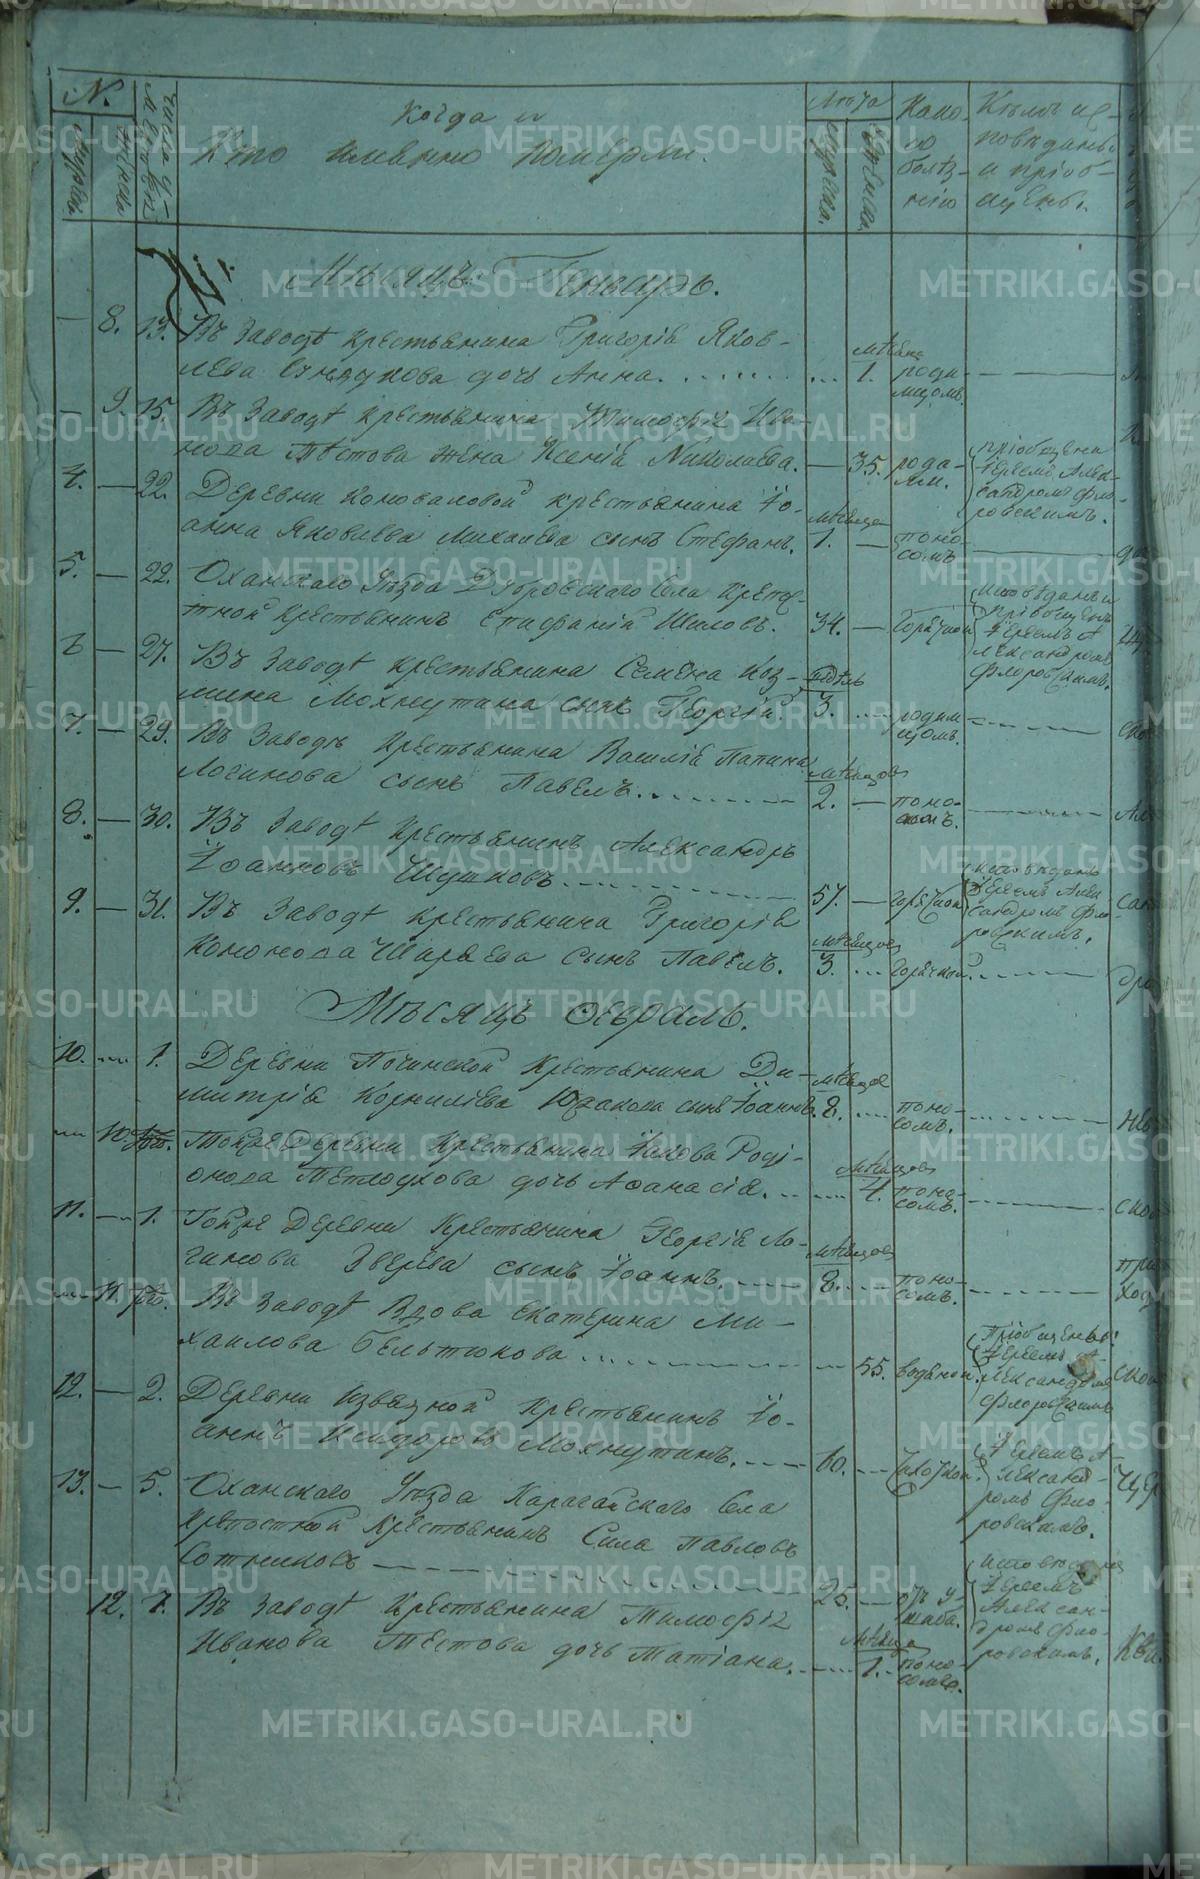 N.
Мужеска
Женска
Число у-
мершихъ
Когда и
Кто именно померли.
Лѣта
Мужеска.
Женска.
Како-
ю
болѣз-
нію
Кѣмъ ис-
повѣданы
и пріоб-
щены.
Мѣсяцъ Генварь.
— 8. 13. Въ Заводѣ крестьянина Григорія Яков-
лева дочь Анна. ... мѣсяца 1. роди-
мцомъ.
— 9. 15. Въ Заводѣ крестьянина Тимофея Ива-
нова Тѣстова жена Ксенія Николаева. — 35. рода-
ми. пріобщена
Іереемъ Алек-
сандромъ Фло-
ровскимъ.
4. — 22. Деревни Коноваловой крестьянина Іо-
анна Яковлева Михалева сынъ Стефанъ. мѣсяца 1. — поно-
сомъ.
5. — 22. Оханскаго Уѣзда Дубровскаго Села крепо-
стной крестьянинъ Епифаній Шиловъ. 34. — горячкой исповѣданъ и
пріобщенъ
Іереемъ А-
лександромъ
Флоровскимъ.
6 — 27. Въ Заводѣ крестьянина Семена Коз-
мина Мохнутина сынъ Георгій. недѣль 3. .... родим-
цомъ.
7. — 29. Въ Заводѣ крестьянина Василія
Логинова сынъ Павелъ. мѣсяцовъ 2. — поно-
сомъ.
8. — 30. Въ Заводѣ Крестьянинъ Александръ
Іоанновъ Шутковъ 57. — горячкой исповѣданъ
Іереемъ Алек-
сандромъ Фло-
ровскимъ.
9. — 31. Въ Заводѣ крестьянина Григорія
Кононова Шараева сынъ Павелъ. мѣсяцовъ 3. ... горячкой.
Мѣсяцъ Февраль.
10. 1. Деревни Починской Крестьянина Ди-
митрія Корнилѣва Юдакова сынъ Іоаннъ. мѣсяцов 8. .... поно-
сомъ.
10. Тойже Деревни Крестьянина Іакова Роді-
онова дочь Афанасія. мѣсяцовъ 4. поно-
сомъ.
11. — 1. Тойже Деревни Крестьянина Георгія Ло-
гинова Зверева сынъ Іоаннъ. мѣсяцов 8. поно-
сомъ.
11. Въ Заводѣ Вдова Екатерина Ми-
хаилова Бельтюкова — 55. водяной. Пріобщена
Іереемъ А-
лександромъ
Флоровскимъ
12. — 2. Деревни Крестьянинъ Іо-
аннъ Исидоровъ Мохнутинъ. 60. — чахоткой. Іереемъ А-
лександ-
ромъ Фло-
ровскимъ.
13. — 5. Оханскаго Уѣзда Карагайскаго Села
крепостной Крестьянинъ Сила Павловъ
Сотниковъ — 25. — отъ у-
шиба. исповѣданъ
Іереемъ
Алексан-
дромъ Фло-
ровскимъ.
12. 7. Въ Заводѣ Крестьянина Тимофея
Иванова Тѣстова дочь Татіана. мѣсяца 1. поно-
сомъ.
METRIKI.GASO-URAL.RU